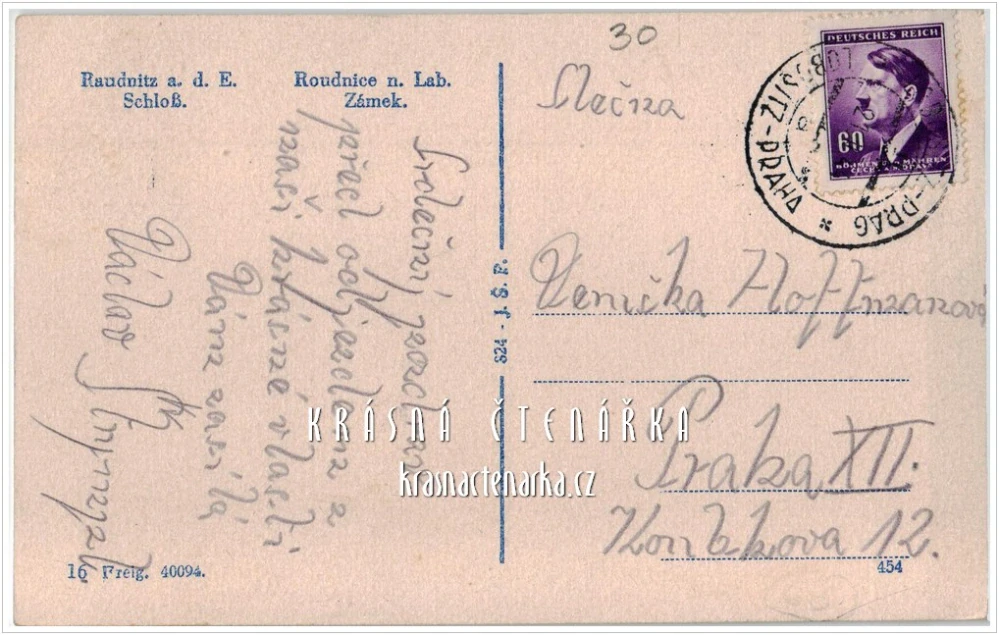 30
Raudnitz a. d. E.
Schloß.
Roudnice n. Lab.
Zámek.
Srdečný pozdrav
před odjezdem z
naší krásné vlasti
Vám zasílá
Václav
16 Freig. 40094.
824 - J. Š. F.
DEUTSCHES REICH
60
BÖHMEN U. MÄHREN
ČECHY A MORAVA
PRAHA
PRAG
Slečna
Venička Hoffmanová
Praha XII.
12.
454
KRÁSNÁ ČTENÁŘKA
krasnactenarka.cz